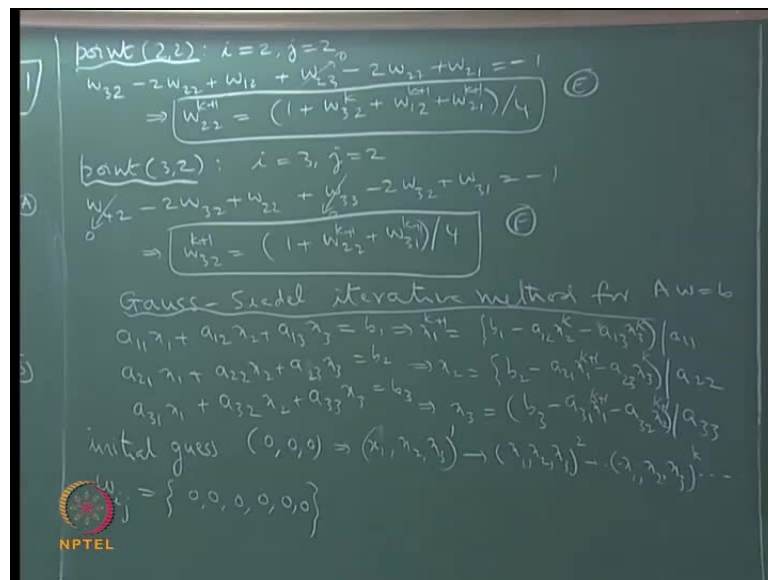 point (2,2) : i = 2, j = 2
w_{32} - 2w_{22} + w_{12} + w_{23}^{→0} - 2w_{22} + w_{21} = -1
⇒ w_{22}^{k+1} = (1 + w_{32}^{k} + w_{12}^{k+1} + w_{21}^{k+1}) / 4 (E)
point (3,2) : i = 3, j = 2
w_{42} - 2w_{32} + w_{22} + w_{33} - 2w_{32} + w_{31} = -1
0 0
⇒ w_{32}^{k+1} = (1 + w_{22}^{k+1} + w_{31}^{k+1}) / 4 (F)
Gauss-Siedel iterative method for Aw = b
a_{11} x_1 + a_{12} x_2 + a_{13} x_3 = b_1 ⇒ x_1^{k+1} = {b_1 - a_{12} x_2^k - a_{13} x_3^k) / a_{11}
a_{21} x_1 + a_{22} x_2 + a_{23} x_3 = b_2 ⇒ x_2 = {b_2 - a_{21} x_1^{k+1} - a_{23} x_3^k) / a_{22}
a_{31} x_1 + a_{32} x_2 + a_{33} x_3 = b_3 ⇒ x_3 = (b_3 - a_{31} x_1^{k+1} - a_{32} x_2^{k+1}) / a_{33}
initial guess (0,0,0) ⇒ (x_1, x_2, x_3)^1 → (x_1, x_2, x_3)^2 - (x_1, x_2, x_3)^k ...
w_{ij} = { 0,0,0,0,0,0 }
NPTEL